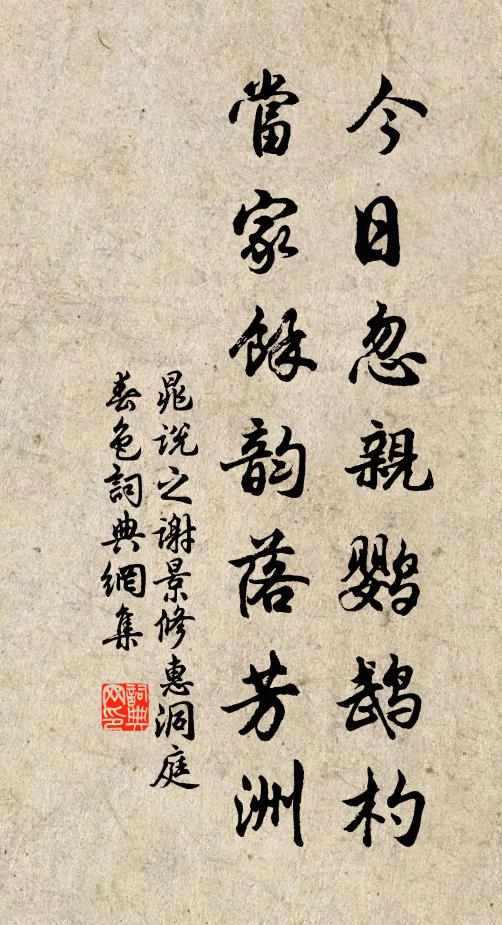 今日忽親鸚鵡杓
當家餘韵落芳洲
晁説之謝景修惠洞庭
春色詞典網集
詞典网印